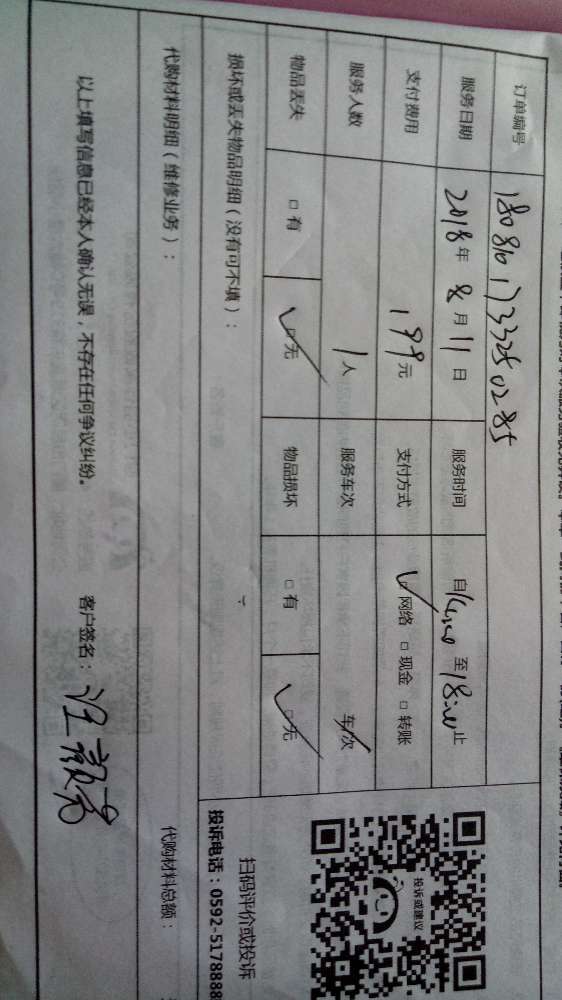 订单编号 1808101733250285
服务日期 2018年8月11日 服务时间 自 至18:00止
支付费用 199元 支付方式 网络 □现金 □转账
服务人数 1人 服务车次 车/次
物品丢失 □有 □无 物品损坏 □有 □无
损坏或丢失物品明细（没有可不填）：
投诉或建议
扫码评价或投诉
投诉电话：0592-5178888
代购材料明细（维修业务）： 代购材料总额：
以上填写信息已经本人确认无误，不存在任何争议纠纷。 客户签名：